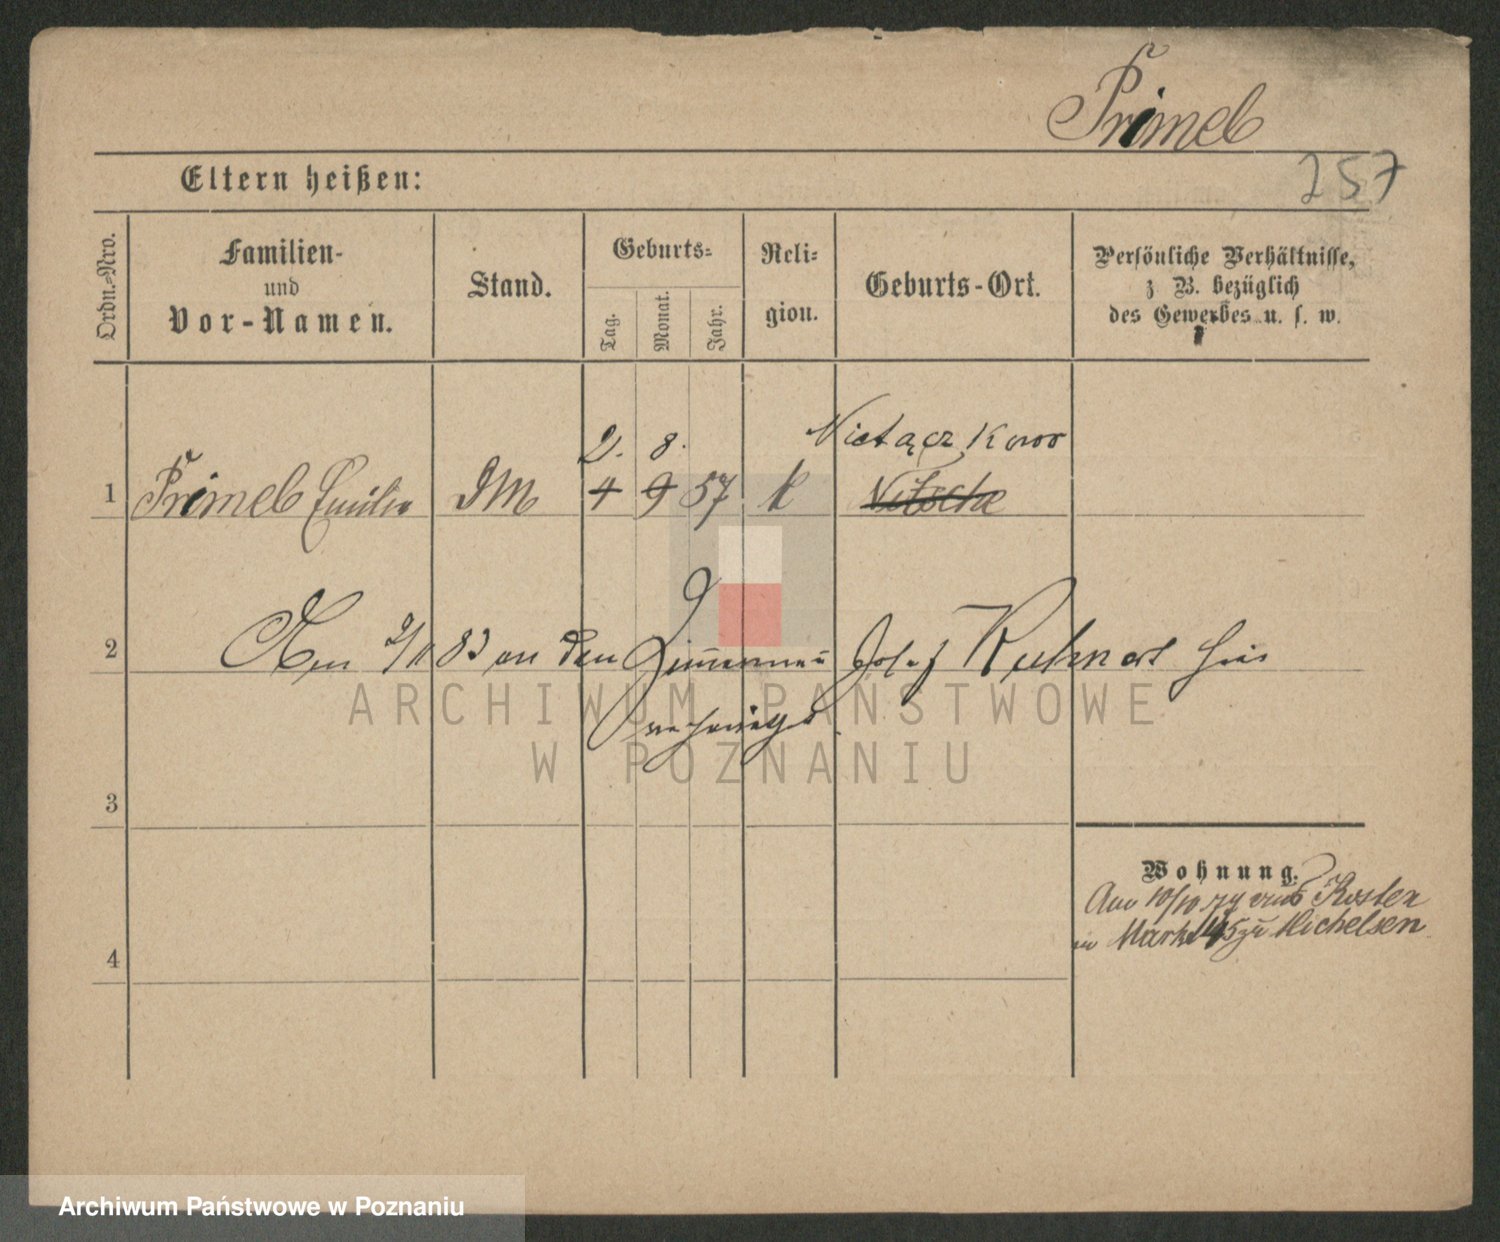 Primel
257
Eltern heißen:
Ordn.-Nro.
Familien-
und
Vor-Namen.
Stand.
Geburts-
Tag.
Monat.
Jahr.
Reli-
gion.
Geburts-Ort.
Persönliche Verhältnisse,
z B. bezüglich
des Gewerbes u. s. w.
2. 8.
1 Primel Emilie DM 4 9 57 k Nitsche
2 Am 2/11 83 an den Josef Kuhnert hier
3
Wohnung.
Am 10/10 79 aus Kosten
Markt 45 zu Michelsen
4
ARCHIWUM PAŃSTWOWE
W POZNANIU
Archiwum Państwowe w Poznaniu